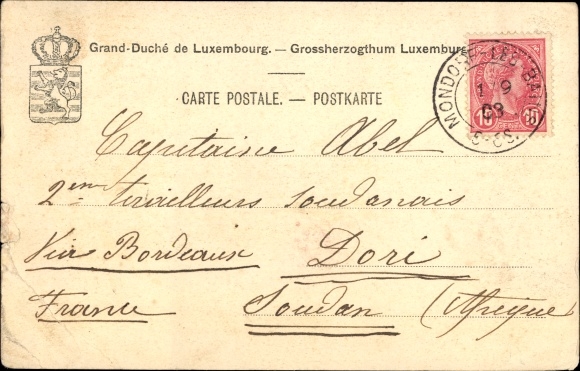 Grand-Duché de Luxembourg. — Grossherzogthum Luxemburg
CARTE POSTALE. — POSTKARTE
MONDORF-LES-BAINS
1 9
03
5-6S.
10 10
Capitaine Abel
2em tirailleurs soudanais
Via Bordeaux Dori
France Soudan (Afrique)